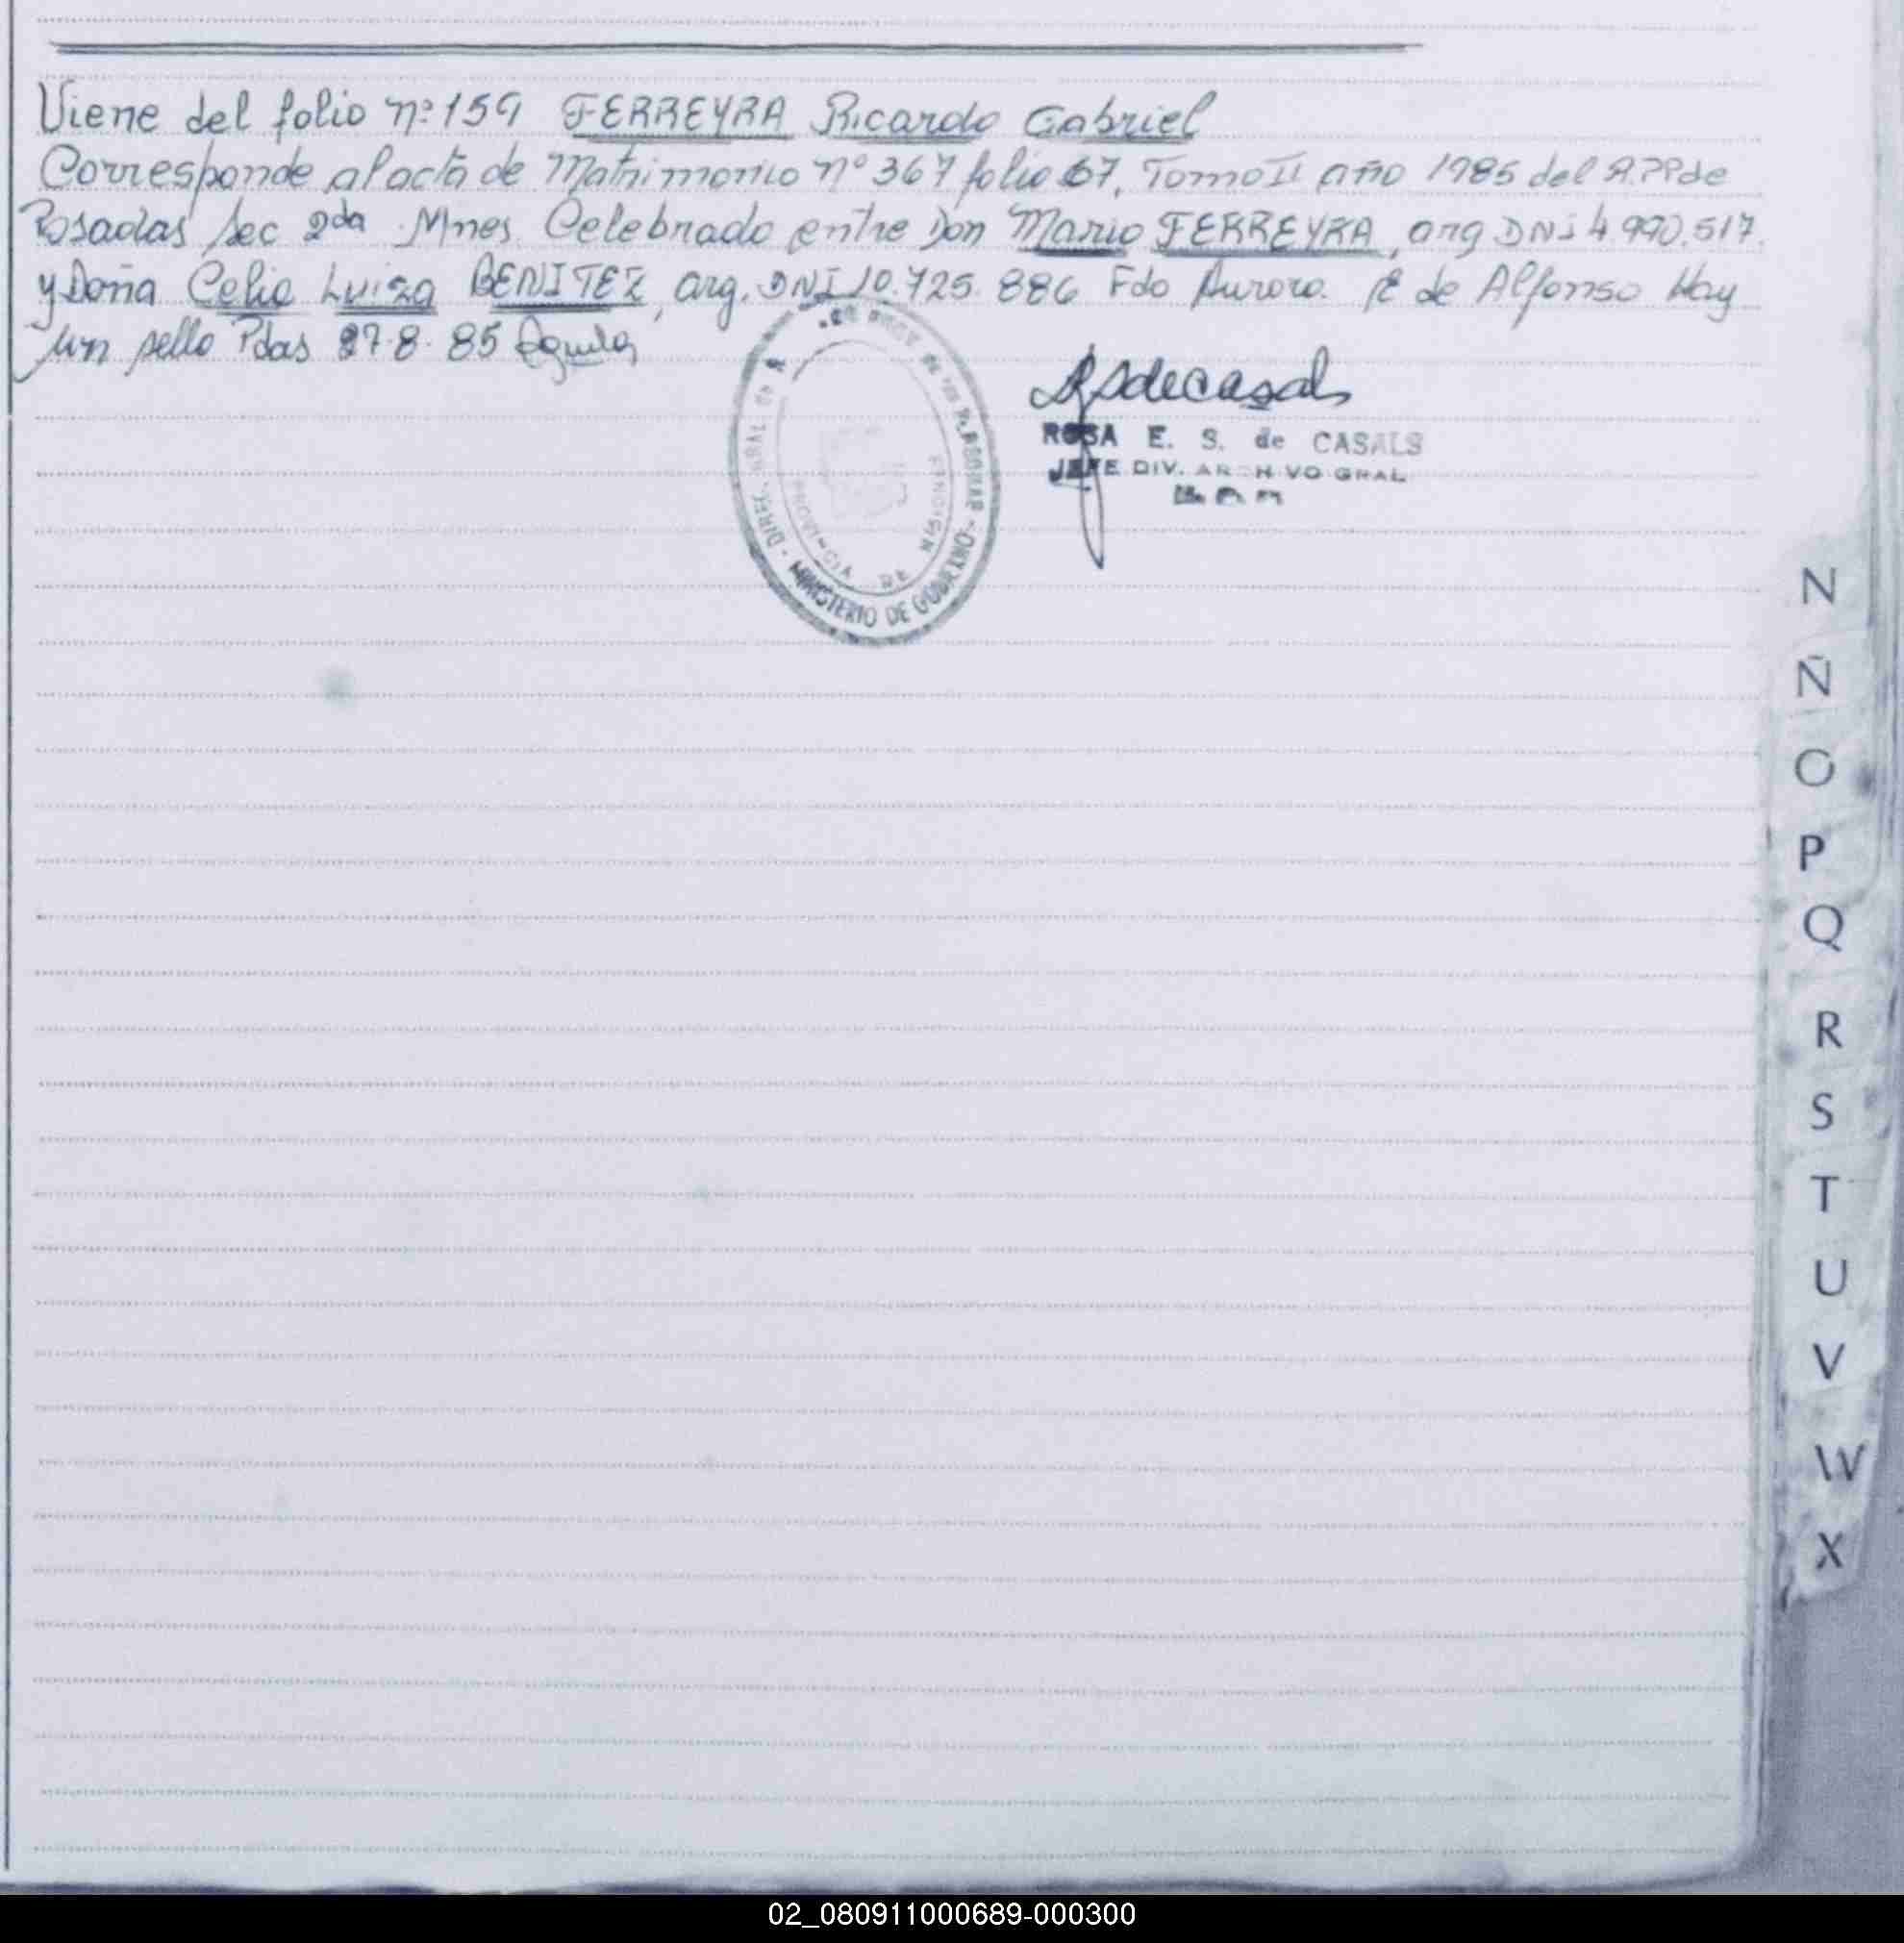 Viene del folio nº 159 FERREYRA Ricardo Gabriel
Corresponde al acta de Matrimonio nº 367 folio 67, Tomo II año 1985 del R.PP de
Posadas Sec 2da Mnes. Celebrado entre Don Mario FERREYRA, arg DNI 4.990.517
y Doña Celia Luiza BENITEZ, arg. DNI 10.725.886 Fdo Aurora. R de Alfonso Hay
un sello Pdas 27.8.85
ROSA E. S. de CASALS
JEFE DIV. ARCHIVO GRAL
MINISTERIO DE GOBIERNO
PROVINCIA DE MISIONES
N
Ñ
O
P
Q
R
S
T
U
V
W
X
02_080911000689-000300